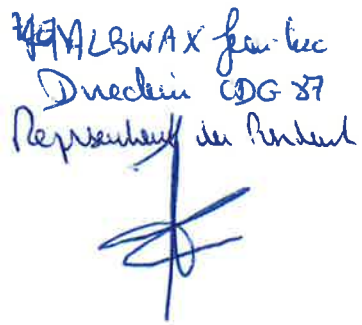 ALBWAX Jean-Luc
Directeur CDG 87
Représentant du Président